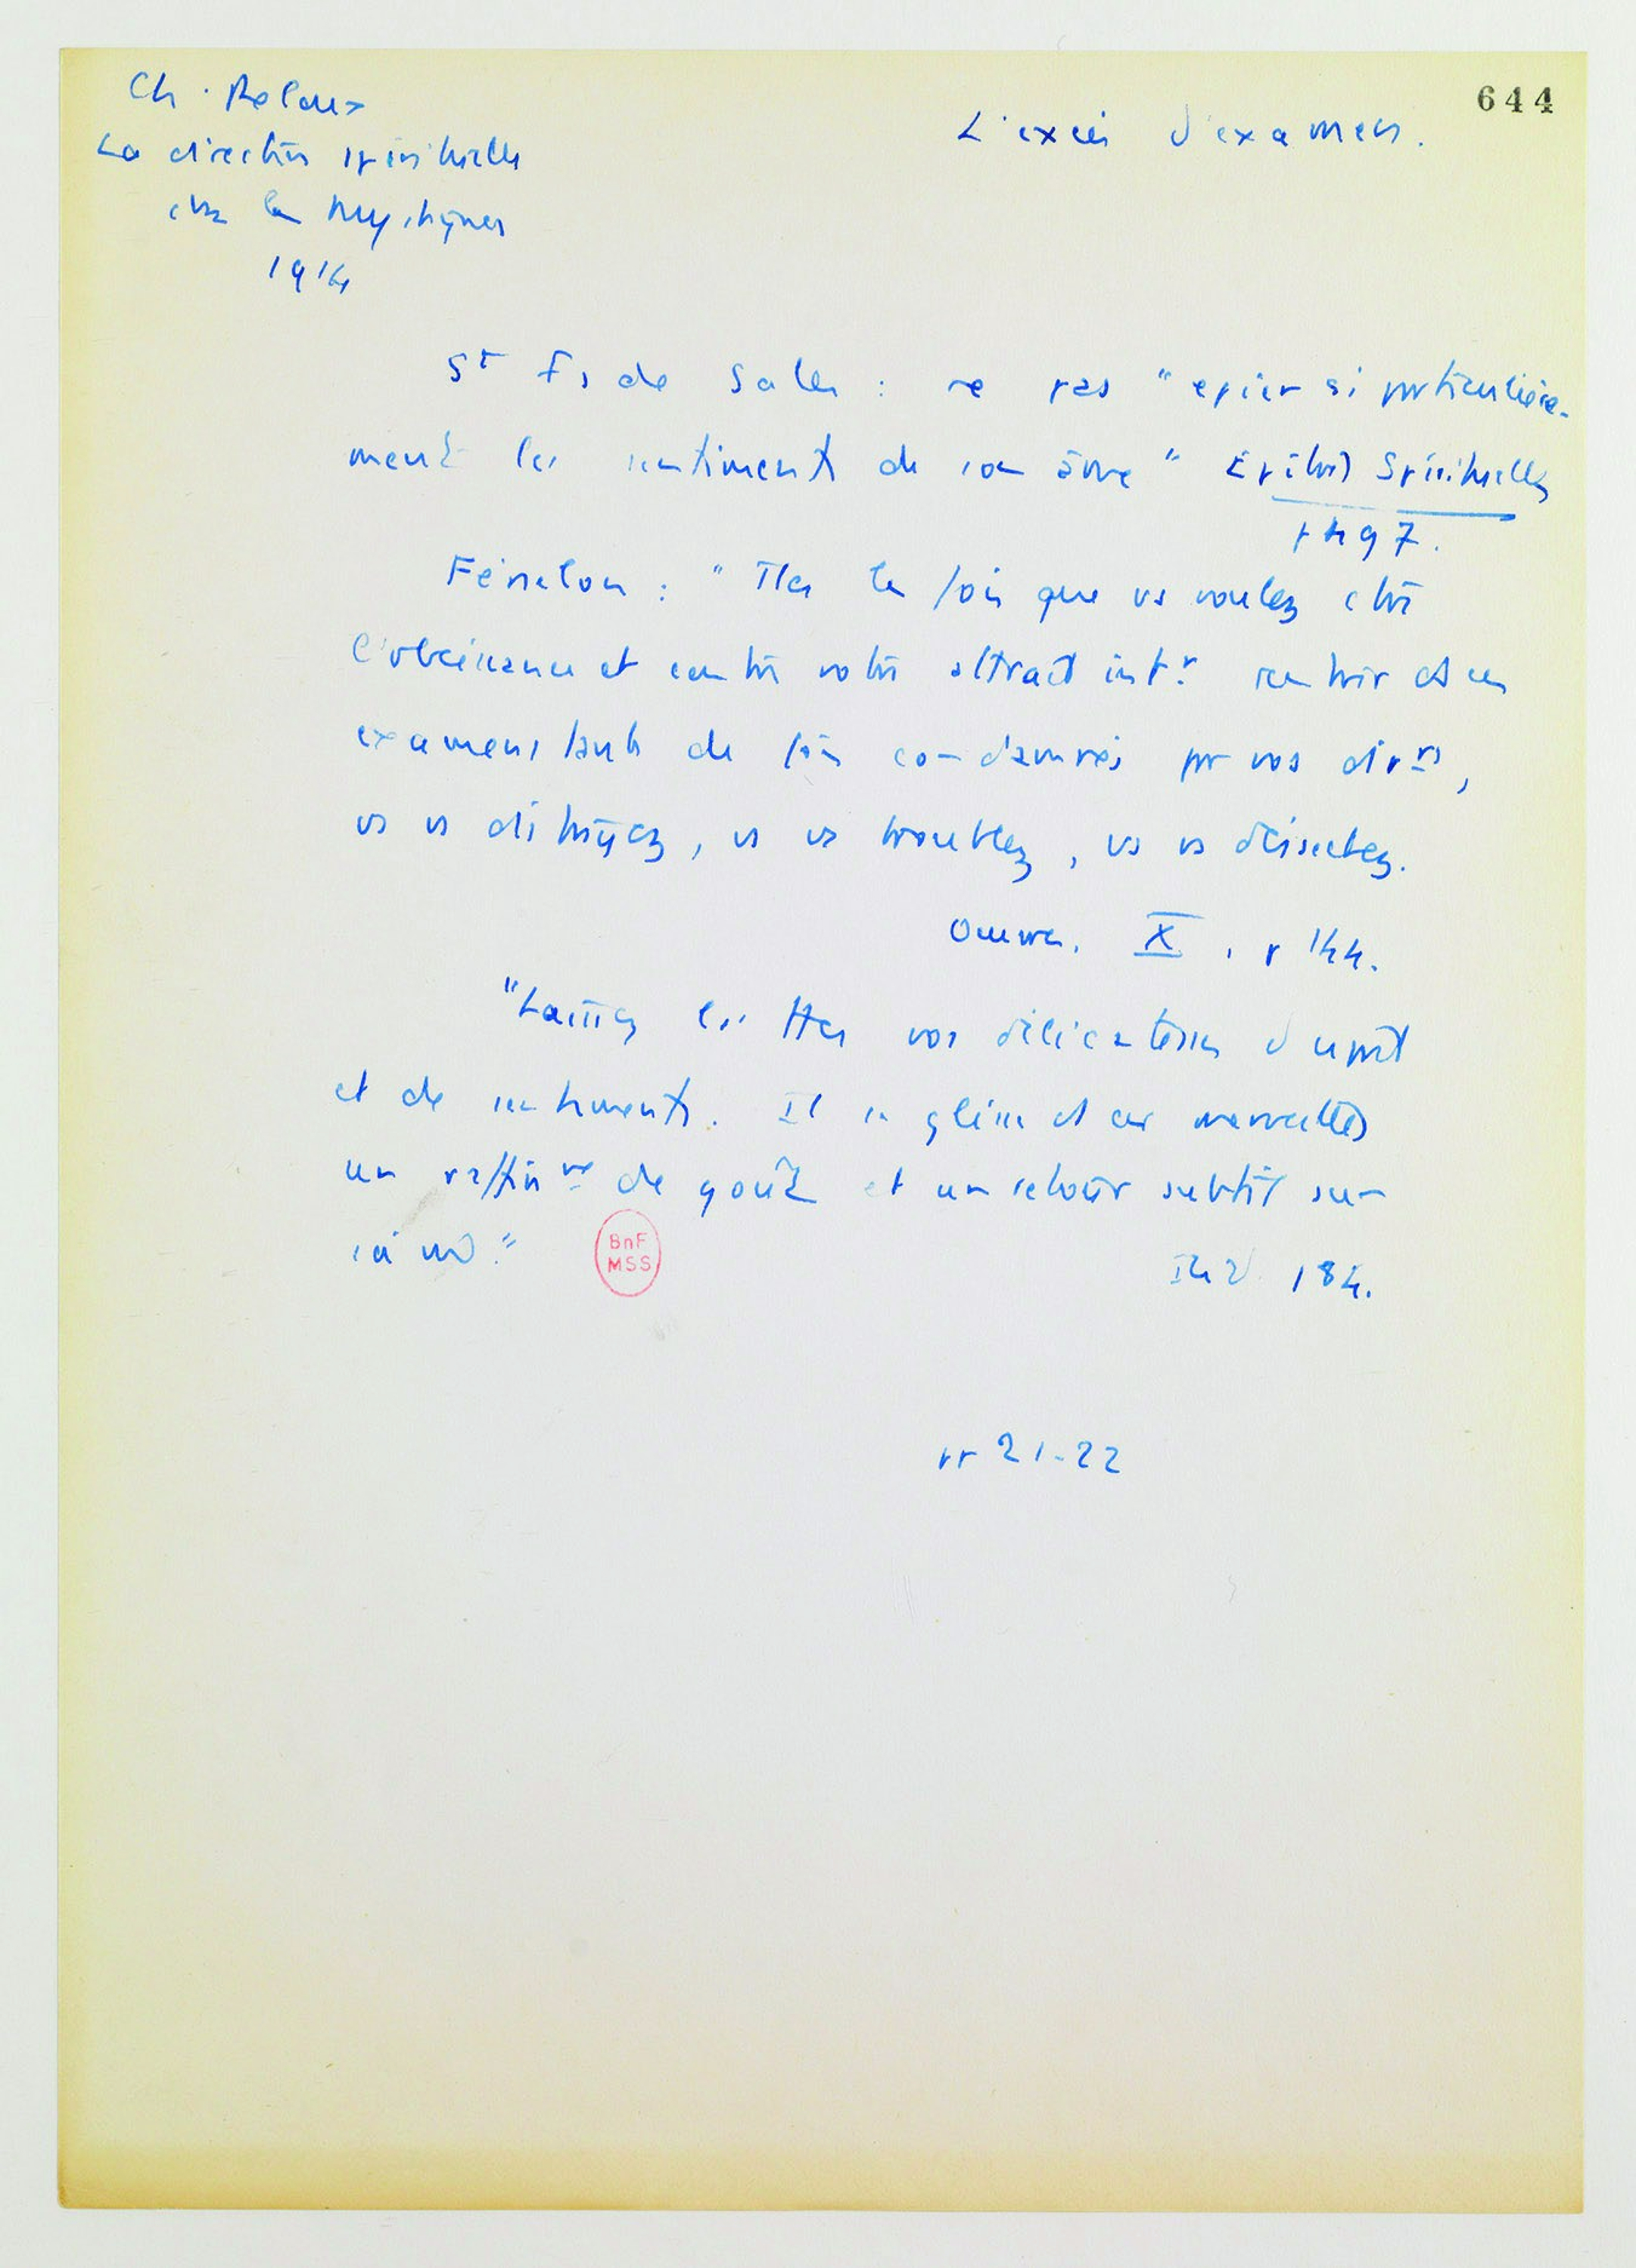 644
Ch. 
La direction spirituelle
chez les Mystiques
1914
L'excès d'examen.
St Fs de Sales : ne pas "epier si particulière-
ment les sentiments de son âme" Epitres Spirituelles
p 497.
Fénelon : "Ttes les fois que vs voulez contre
l'obéissance et contre votre attrait intr rentrer ds ces
examens tant de fois condamnés par vos dirrs,
vs vs distrayez, vs vs troublez, vs vs désséchez.
Oeuvres. X, p 144.
"Laissez les ttes vos délicatesses d'esprit
et de sentiments. Il se glisse ds ces merveilles
un raffinme de goût et un retour subtil sur
soi mê."
BnF
MSS
Ibid 184.
pp 21-22